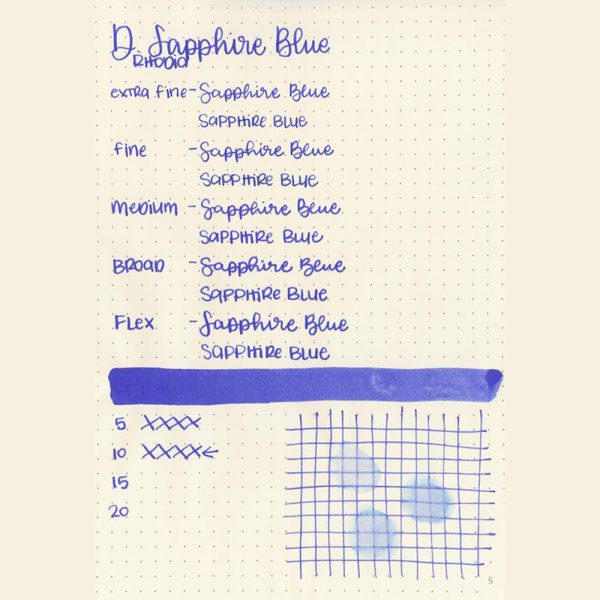 D. Sapphire Blue
RHODIA
EXTRA FINE - Sapphire Blue
SAPPHIRE BLUE
FINE - Sapphire Blue
SAPPHIRE BLUE
MEDIUM - Sapphire Blue
SAPPHIRE BLUE
BROAD - Sapphire Blue
SAPPHIRE BLUE
FLEX - Sapphire Blue
SAPPHIRE BLUE
5 XXXX
10 XXXX←
15
20
5